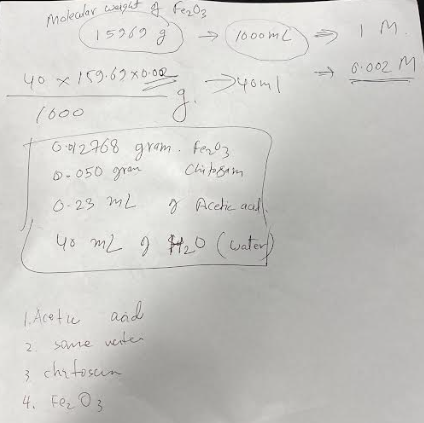 Molecular weight of Fe2O3
15969 g → 1000 mL ⇒ 1 M.
40 × 159.69 × 0.002 → 40 ml ⇒ 0.002 M
1000 g.
0.012768 gram. Fe2O3
0.050 gram Chitosan
0.23 mL of Acetic acid.
40 mL of H2O (water)
1. Acetic acid
2. some water
3 chitosan
4. Fe2O3